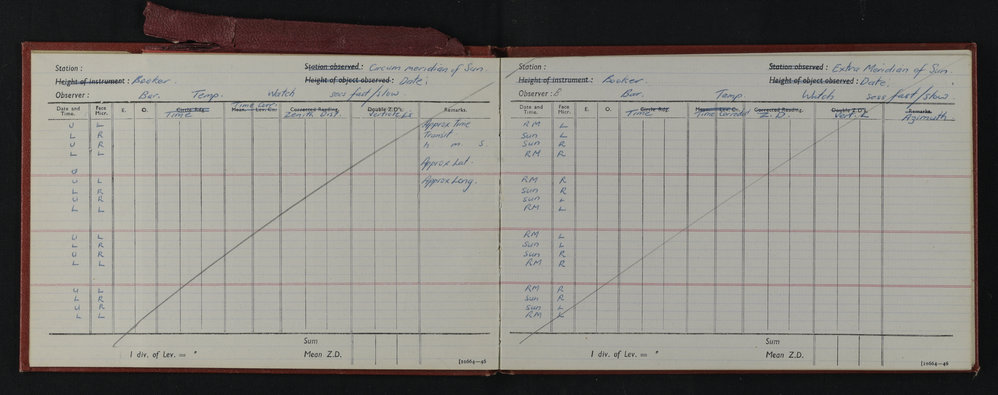 Station :
Station observed : Circum meridian of Sun.
Height of instrument : Booker.
Height of object observed : Date:
Observer : Bar. Temp. Watch secs fast/slow.
Date and Time. Face Micr. E. O. Circle Rdg. Mean. Lev. Cor. Corrected Reading. Double Z.D's. Remarks.
Time Time Corr. Zenith Dist. Verticle Ls
U L Approx time
L R Transit.
U R h m s
L L
Approx Lat.
U
U L Approx Long.
L R
U R
L L
U L
L R
U R
L L
U L
L R
U R
L L
Sum
1 div. of Lev. = " Mean Z.D.
[11664—46
Station :
Station observed : Extra Meridian of Sun.
Height of instrument : Booker.
Height of object observed : Date.
Observer : Bar. Temp. Watch secs fast/slow
Date and Time. Face Micr. E. O. Circle Rdg. Mean. Lev. C. Corrected Reading. Double Z.D's. Remarks.
Time Time Corrected Z.D. Vert. L Azimuth
RM L
Sun L
Sun R
RM R
RM R
Sun R
Sun L
RM L
RM L
Sun L
Sun R
RM R
RM R
Sun R
Sun L
RM L
Sum
1 div. of Lev. = " Mean Z.D.
[11664—46